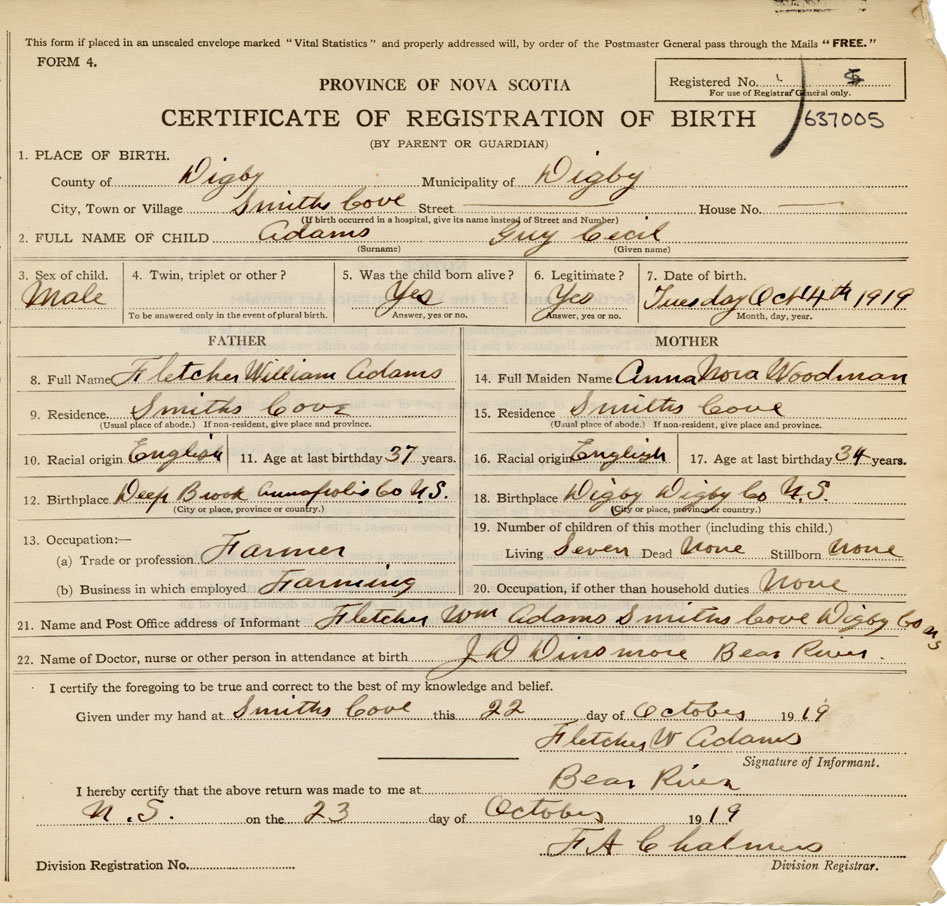 This form if placed in an unsealed envelope marked "Vital Statistics" and properly addressed will, by order of the Postmaster General pass through the Mails "FREE."
FORM 4.
Registered No.
For use of Registrar General only.
PROVINCE OF NOVA SCOTIA
CERTIFICATE OF REGISTRATION OF BIRTH
637005
(BY PARENT OR GUARDIAN)
1. PLACE OF BIRTH.
County of Digby Municipality of Digby
City, Town or Village Smiths Cove Street House No.
(If birth occurred in a hospital, give its name instead of Street and Number)
2. FULL NAME OF CHILD Adams Guy Cecil
(Surname) (Given name)
3. Sex of child. 4. Twin, triplet or other? 5. Was the child born alive? 6. Legitimate? 7. Date of birth.
Male Yes Yes Tuesday Oct 14th 1919
To be answered only in the event of plural birth. Answer, yes or no. Answer, yes or no. Month, day, year.
FATHER MOTHER
8. Full Name Fletcher William Adams 14. Full Maiden Name Anna Nora Woodman
9. Residence. Smiths Cove 15. Residence Smiths Cove
(Usual place of abode.) If non-resident, give place and province. (Usual place of abode.) If non-resident, give place and province.
10. Racial origin English 11. Age at last birthday 37 years. 16. Racial origin English 17. Age at last birthday 34 years.
12. Birthplace Deep Brook Annapolis Co N.S. 18. Birthplace Digby Digby Co N.S.
(City or place, province or country.) (City or place, province or country.)
19. Number of children of this mother (including this child.)
13. Occupation:—
(a) Trade or profession Farmer Living Seven Dead None Stillborn None
(b) Business in which employed Farming 20. Occupation, if other than household duties None
21. Name and Post Office address of Informant Fletcher Wm Adams Smiths Cove Digby Co NS
22. Name of Doctor, nurse or other person in attendance at birth J D Dinsmore Bear River.
I certify the foregoing to be true and correct to the best of my knowledge and belief.
Given under my hand at Smiths Cove this 22 day of October 1919
Fletcher W Adams
Signature of Informant.
I hereby certify that the above return was made to me at Bear River
N.S. on the 23 day of October 1919
F A Chalmers
Division Registration No. Division Registrar.